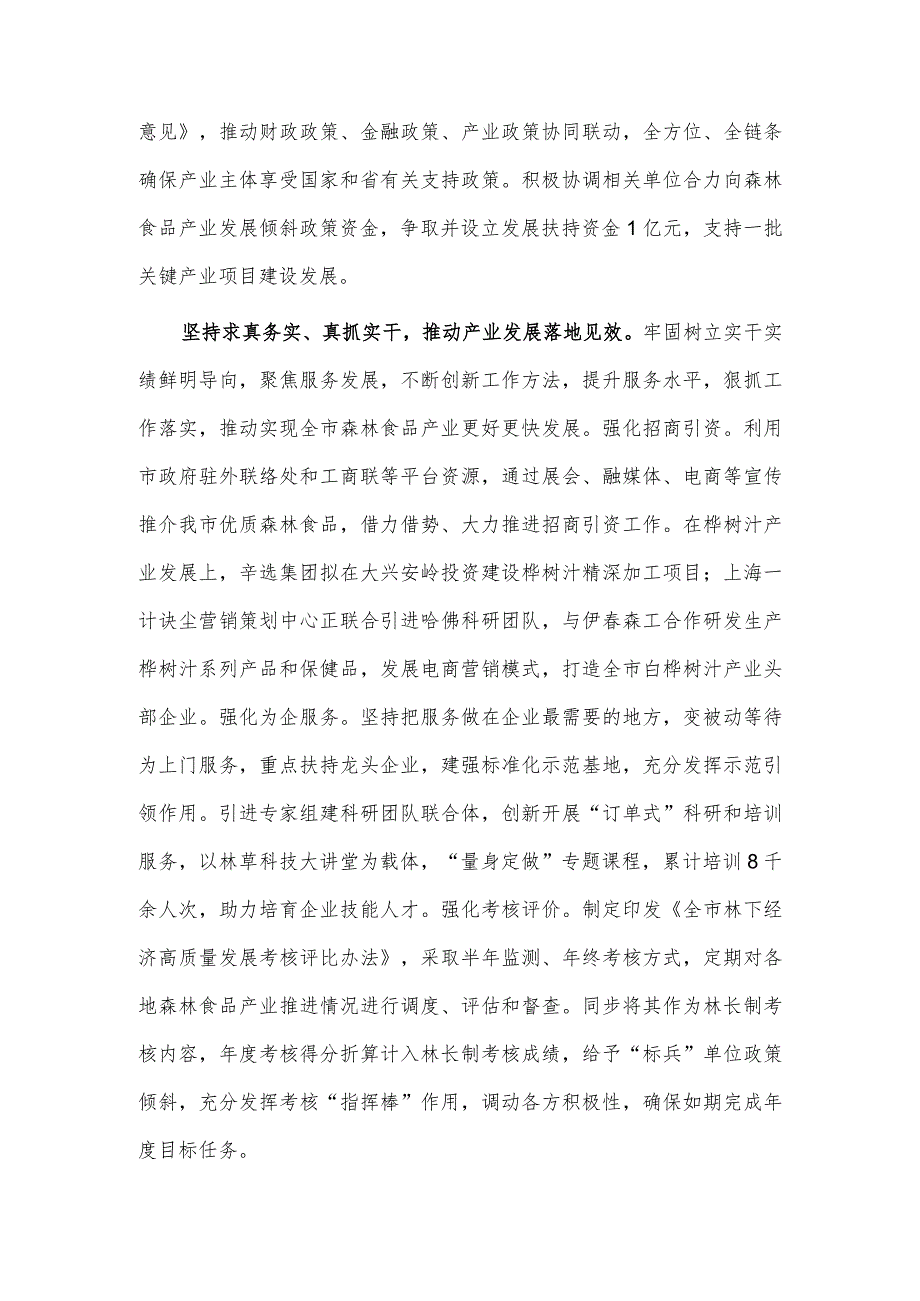 意见》，推动财政政策、金融政策、产业政策协同联动，全方位、全链条
确保产业主体享受国家和省有关支持政策。积极协调相关单位合力向森林
食品产业发展倾斜政策资金，争取并设立发展扶持资金1亿元，支持一批
关键产业项目建设发展。
坚持求真务实、真抓实干，推动产业发展落地见效。牢固树立实干实
绩鲜明导向，聚焦服务发展，不断创新工作方法，提升服务水平，狠抓工
作落实，推动实现全市森林食品产业更好更快发展。强化招商引资。利用
市政府驻外联络处和工商联等平台资源，通过展会、融媒体、电商等宣传
推介我市优质森林食品，借力借势、大力推进招商引资工作。在桦树汁产
业发展上，辛选集团拟在大兴安岭投资建设桦树汁精深加工项目；上海一
计诀尘营销策划中心正联合引进哈佛科研团队，与伊春森工合作研发生产
桦树汁系列产品和保健品，发展电商营销模式，打造全市白桦树汁产业头
部企业。强化为企服务。坚持把服务做在企业最需要的地方，变被动等待
为上门服务，重点扶持龙头企业，建强标准化示范基地，充分发挥示范引
领作用。引进专家组建科研团队联合体，创新开展“订单式”科研和培训
服务，以林草科技大讲堂为载体，“量身定做”专题课程，累计培训8千
余人次，助力培育企业技能人才。强化考核评价。制定印发《全市林下经
济高质量发展考核评比办法》，采取半年监测、年终考核方式，定期对各
地森林食品产业推进情况进行调度、评估和督查。同步将其作为林长制考
核内容，年度考核得分折算计入林长制考核成绩，给予“标兵”单位政策
倾斜，充分发挥考核“指挥棒”作用，调动各方积极性，确保如期完成年
度目标任务。